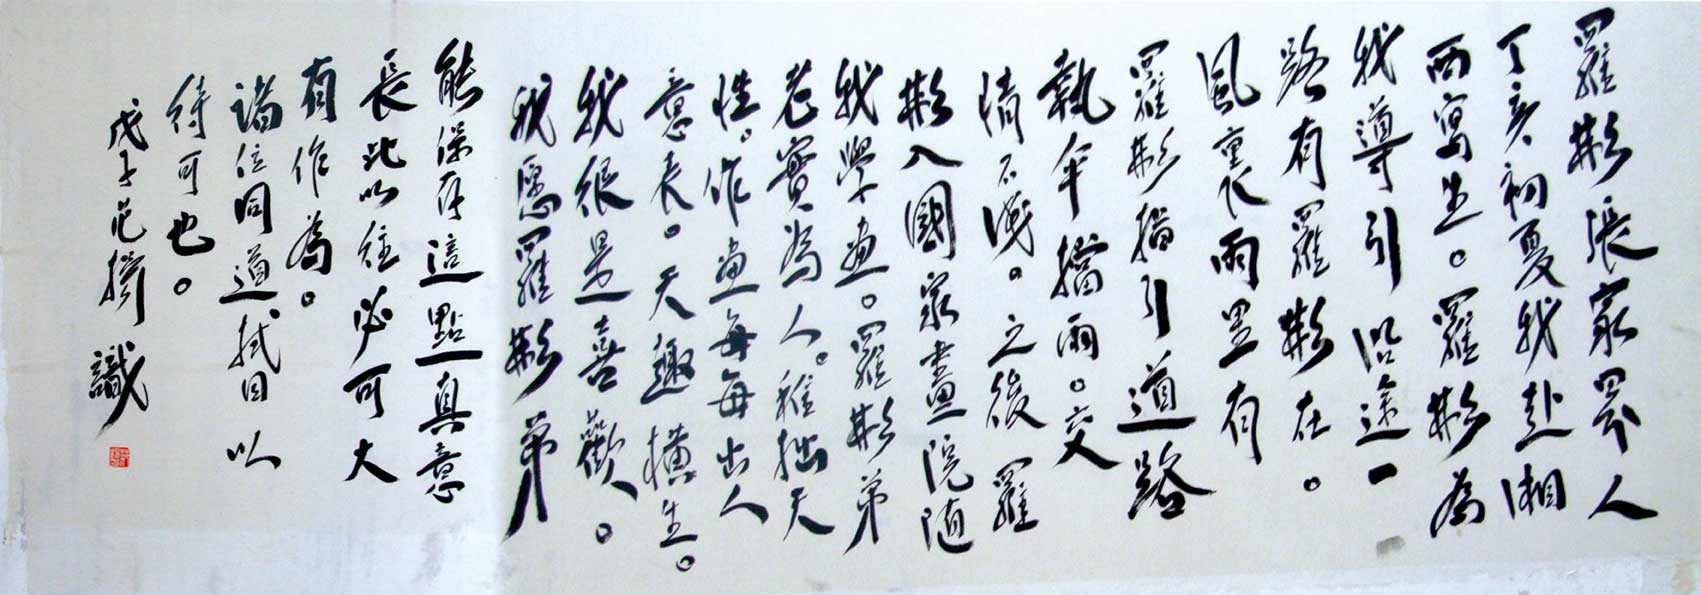 羅彬張家界人
丁亥初夏我赴湘
西寫生。羅彬為
我導引沿途一
路有羅彬在。
風裏人雨里有
羅彬指引道路
執傘擋雨。交
情不淺。之後羅
彬入國家畫院随
我學畫。羅彬弟
老實為人。稚拙天
性。作畫每每出人
意表。天趣橫生。
我很是喜歡。
我愿羅彬弟
能保存這點真意
長此以往必可大
有作為。
諸位同道拭目以
待可也。
戊子范揚識